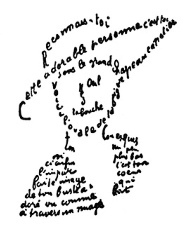 Reconnais-toi
Cette adorable personne c'est toi
sous le grand chapeau canotier
Œil
la bouche
Voici l'ovale de ta figure
Ton cou exquis
Voici
enfin
l'impar
faite image
de ton buste a
doré vu comme
à travers un nuage
un peu
plus bas
c'est ton
cœur
qui
bat